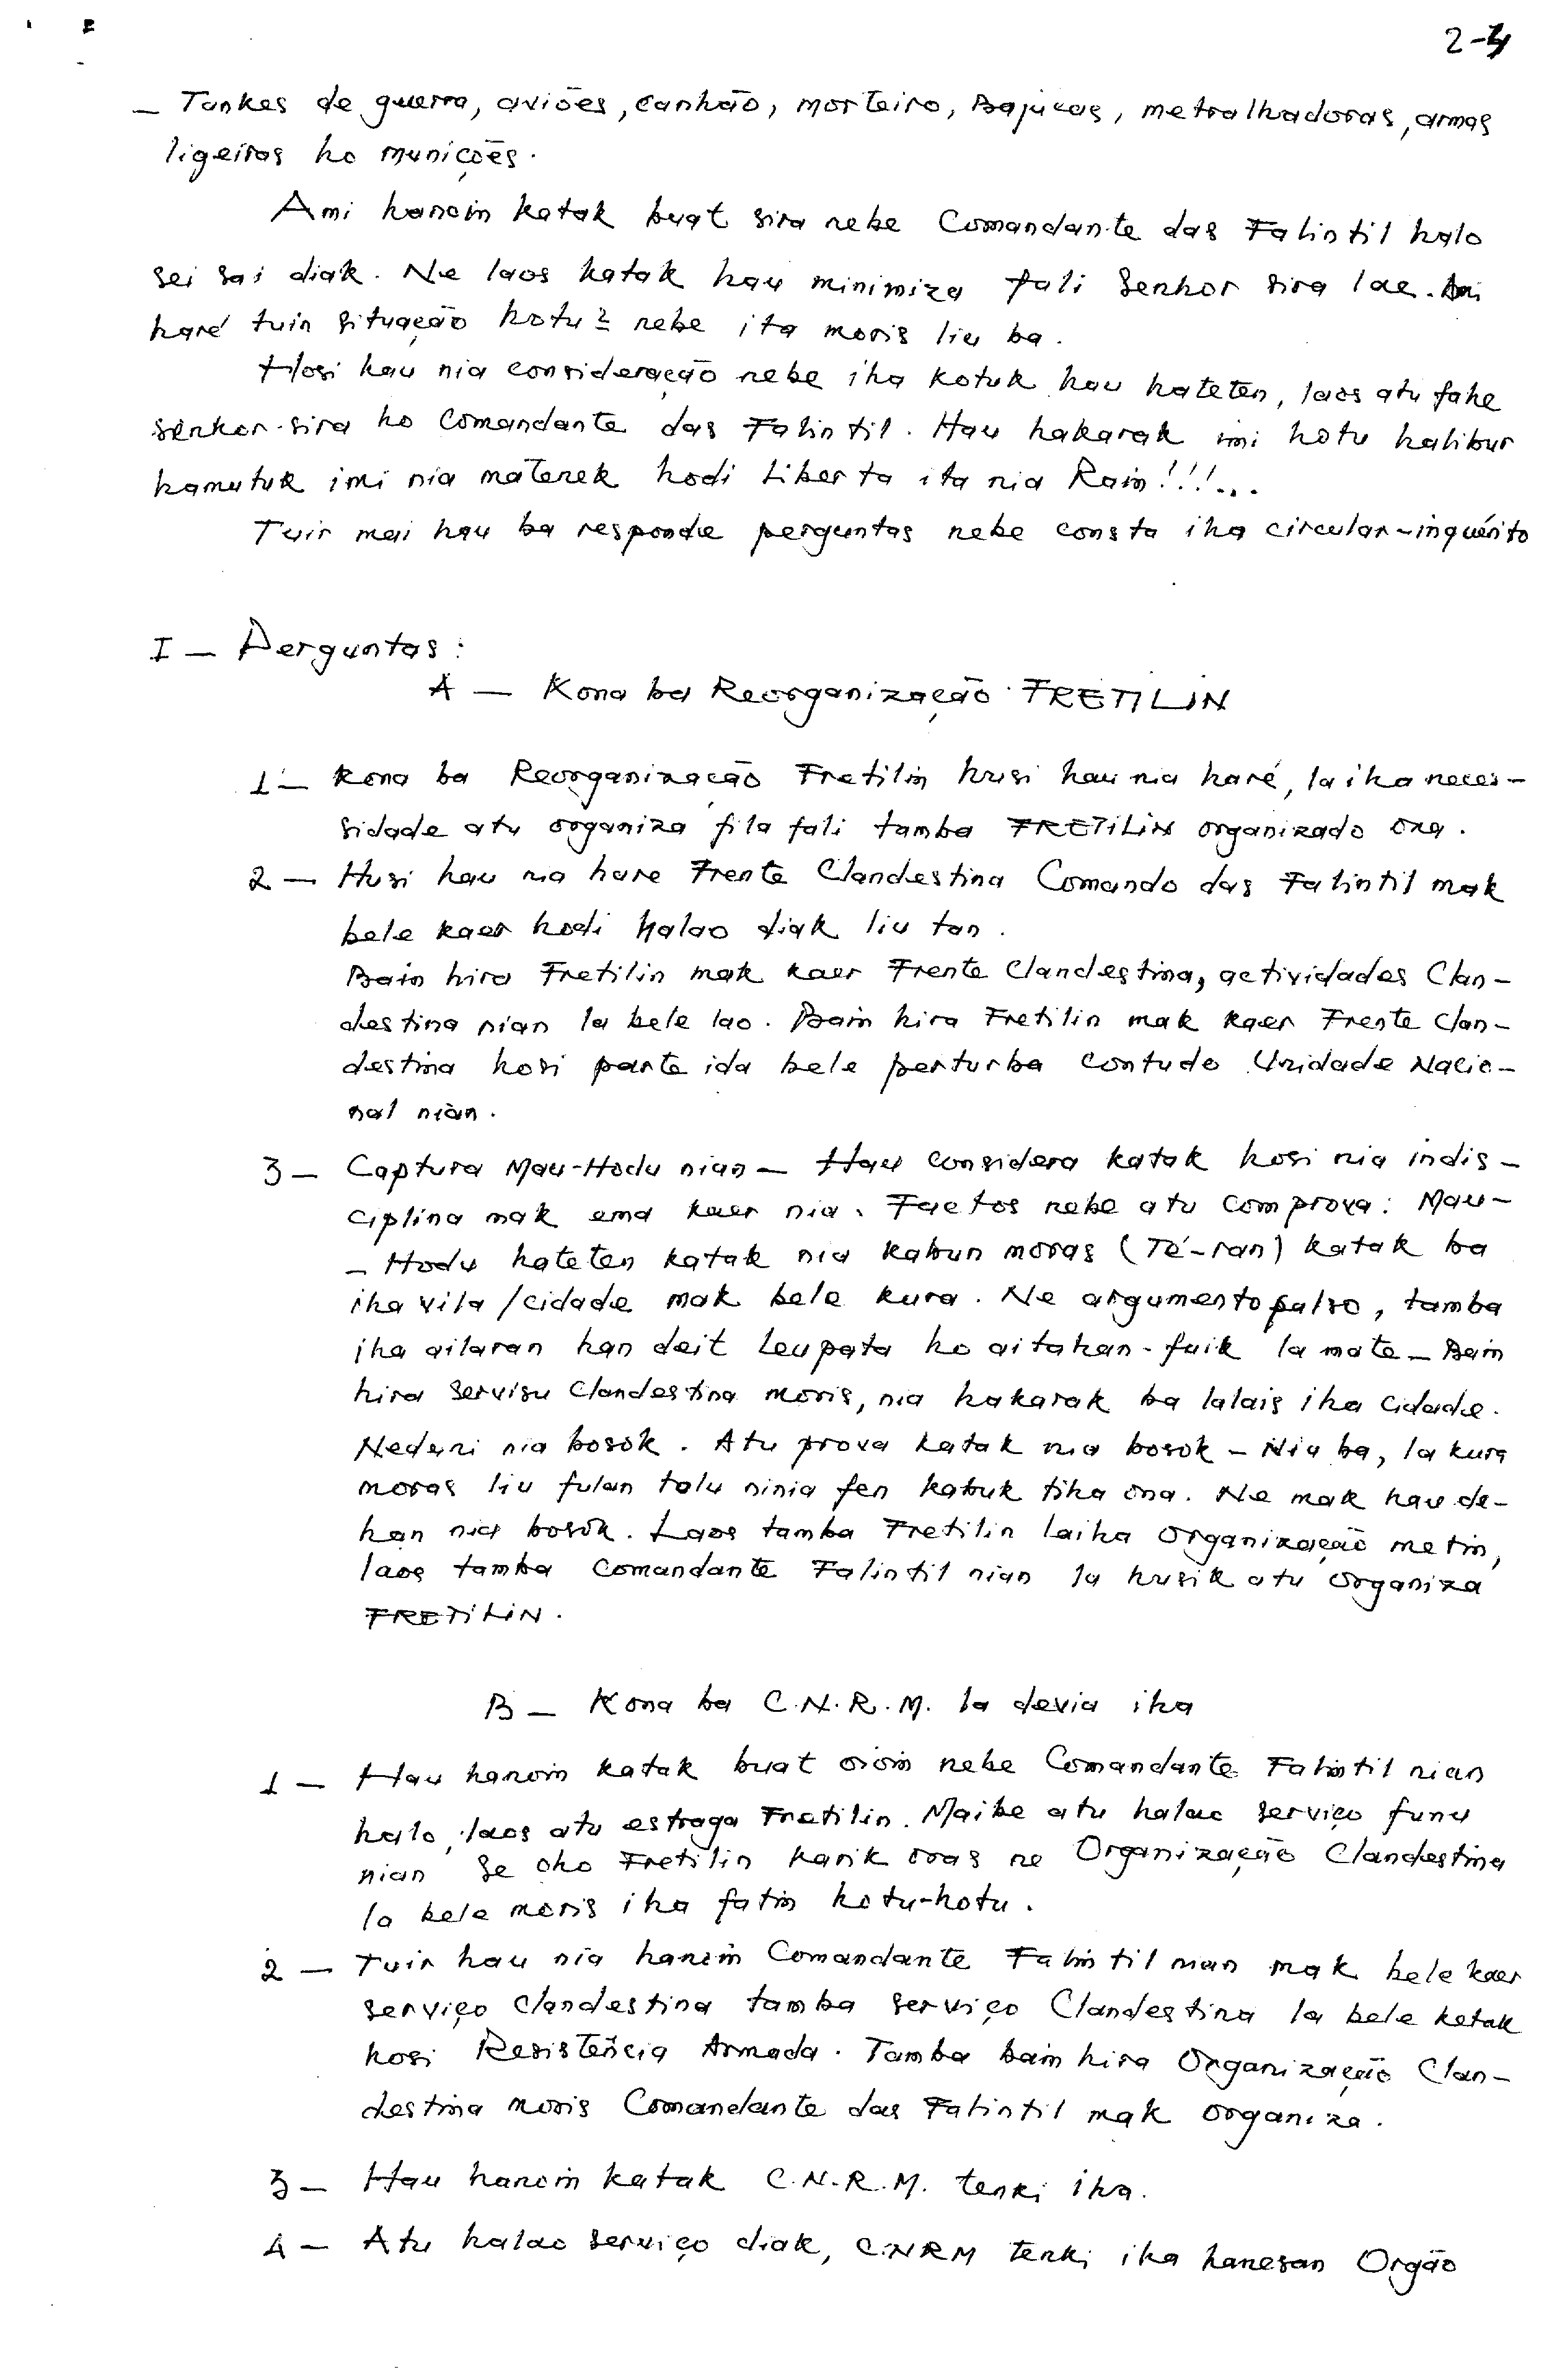 2-4
— Tankes de guerra, aviões, canhão, morteiro, Bajucas, metralhadoras, armas
ligeiras ho munições.
Ami hanoin katak buat sira nebe Comandante das Falintil halo
sei sai diak. Ne laos katak hau minimiza fali Senhor sira lae.
haré tuir situação hotu2 nebe ita moris liu ba.
Hosi hau nia consideração nebe iha kotuk hau hateten, laos atu fahe
senhor-sira ho Comandante das Falintil. Hau hakarak imi hotu halibur
hamutuk imi nia matenek hodi Liberta ita nia Rain!!!...
Tuir mai hau ba responde perguntas nebe consta iha circular-inquérito
I — Perguntas:
A — Kona ba Reorganização FRETILIN
1 — Kona ba Reorganização Fretilin husi hau nia haré, la iha neces-
sidade atu organiza fila fali tamba FRETILIN organizado ona.
2 — Husi hau nia hare Frente Clandestina Comando das Falintil mak
bele kaer hodi halao diak liu tan.
Bain hira Fretilin mak kaer Frente Clandestina, actividades Clan-
destina nian la bele lao. Bain hira Fretilin mak kaer Frente Clan-
destina hosi parte ida bele perturba contudo Unidade Nacio-
nal nian.
3 — Captura Mau-Hodu nian — Hau considera katak hosi nia indis-
ciplina mak ema kaer nia. Factos nebe atu comprova: Mau-
- Hodu hateten katak nia kabun moras (Té-ran) katak ba
iha vila/cidade mak bele kura. Ne argumento falso, tamba
iha ailaran han deit Leupata ho aitahan-fuik la mate — Bain
hira servisu Clandestina moris, nia hakarak ba lalais iha cidade.
Neduni nia bosok. Atu prova katak nia bosok — Nia ba, la kura
moras liu fulan tolu ninia fen kabuk tiha ona. Ne mak hau de-
han nia bosok. Laos tamba Fretilin laiha Organização metin,
laos tamba Comandante Falintil nian la husik atu organiza
FRETILIN.
B — Kona ba C.N.R.M. la devia iha
1 — Hau hanoin katak buat oioin nebe Comandante Falintil nian
halo, laos atu estraga Fretilin. Maibe atu halao serviço funu
nian Se oho Fretilin karik oras ne Organização Clandestina
la bele moris iha fatin hotu-hotu.
2 — Tuir hau nia hanoin Comandante Falintil nian mak bele kaer
serviço clandestina tamba serviço Clandestina la bele ketak
hosi Resistência Armada. Tamba bain hira Organização Clan-
destina moris Comandante das Falintil mak organiza.
3 — Hau hanoin katak C.N.R.M. tenki iha.
4 — Atu halao serviço diak, CNRM tenki iha hanesan Orgão